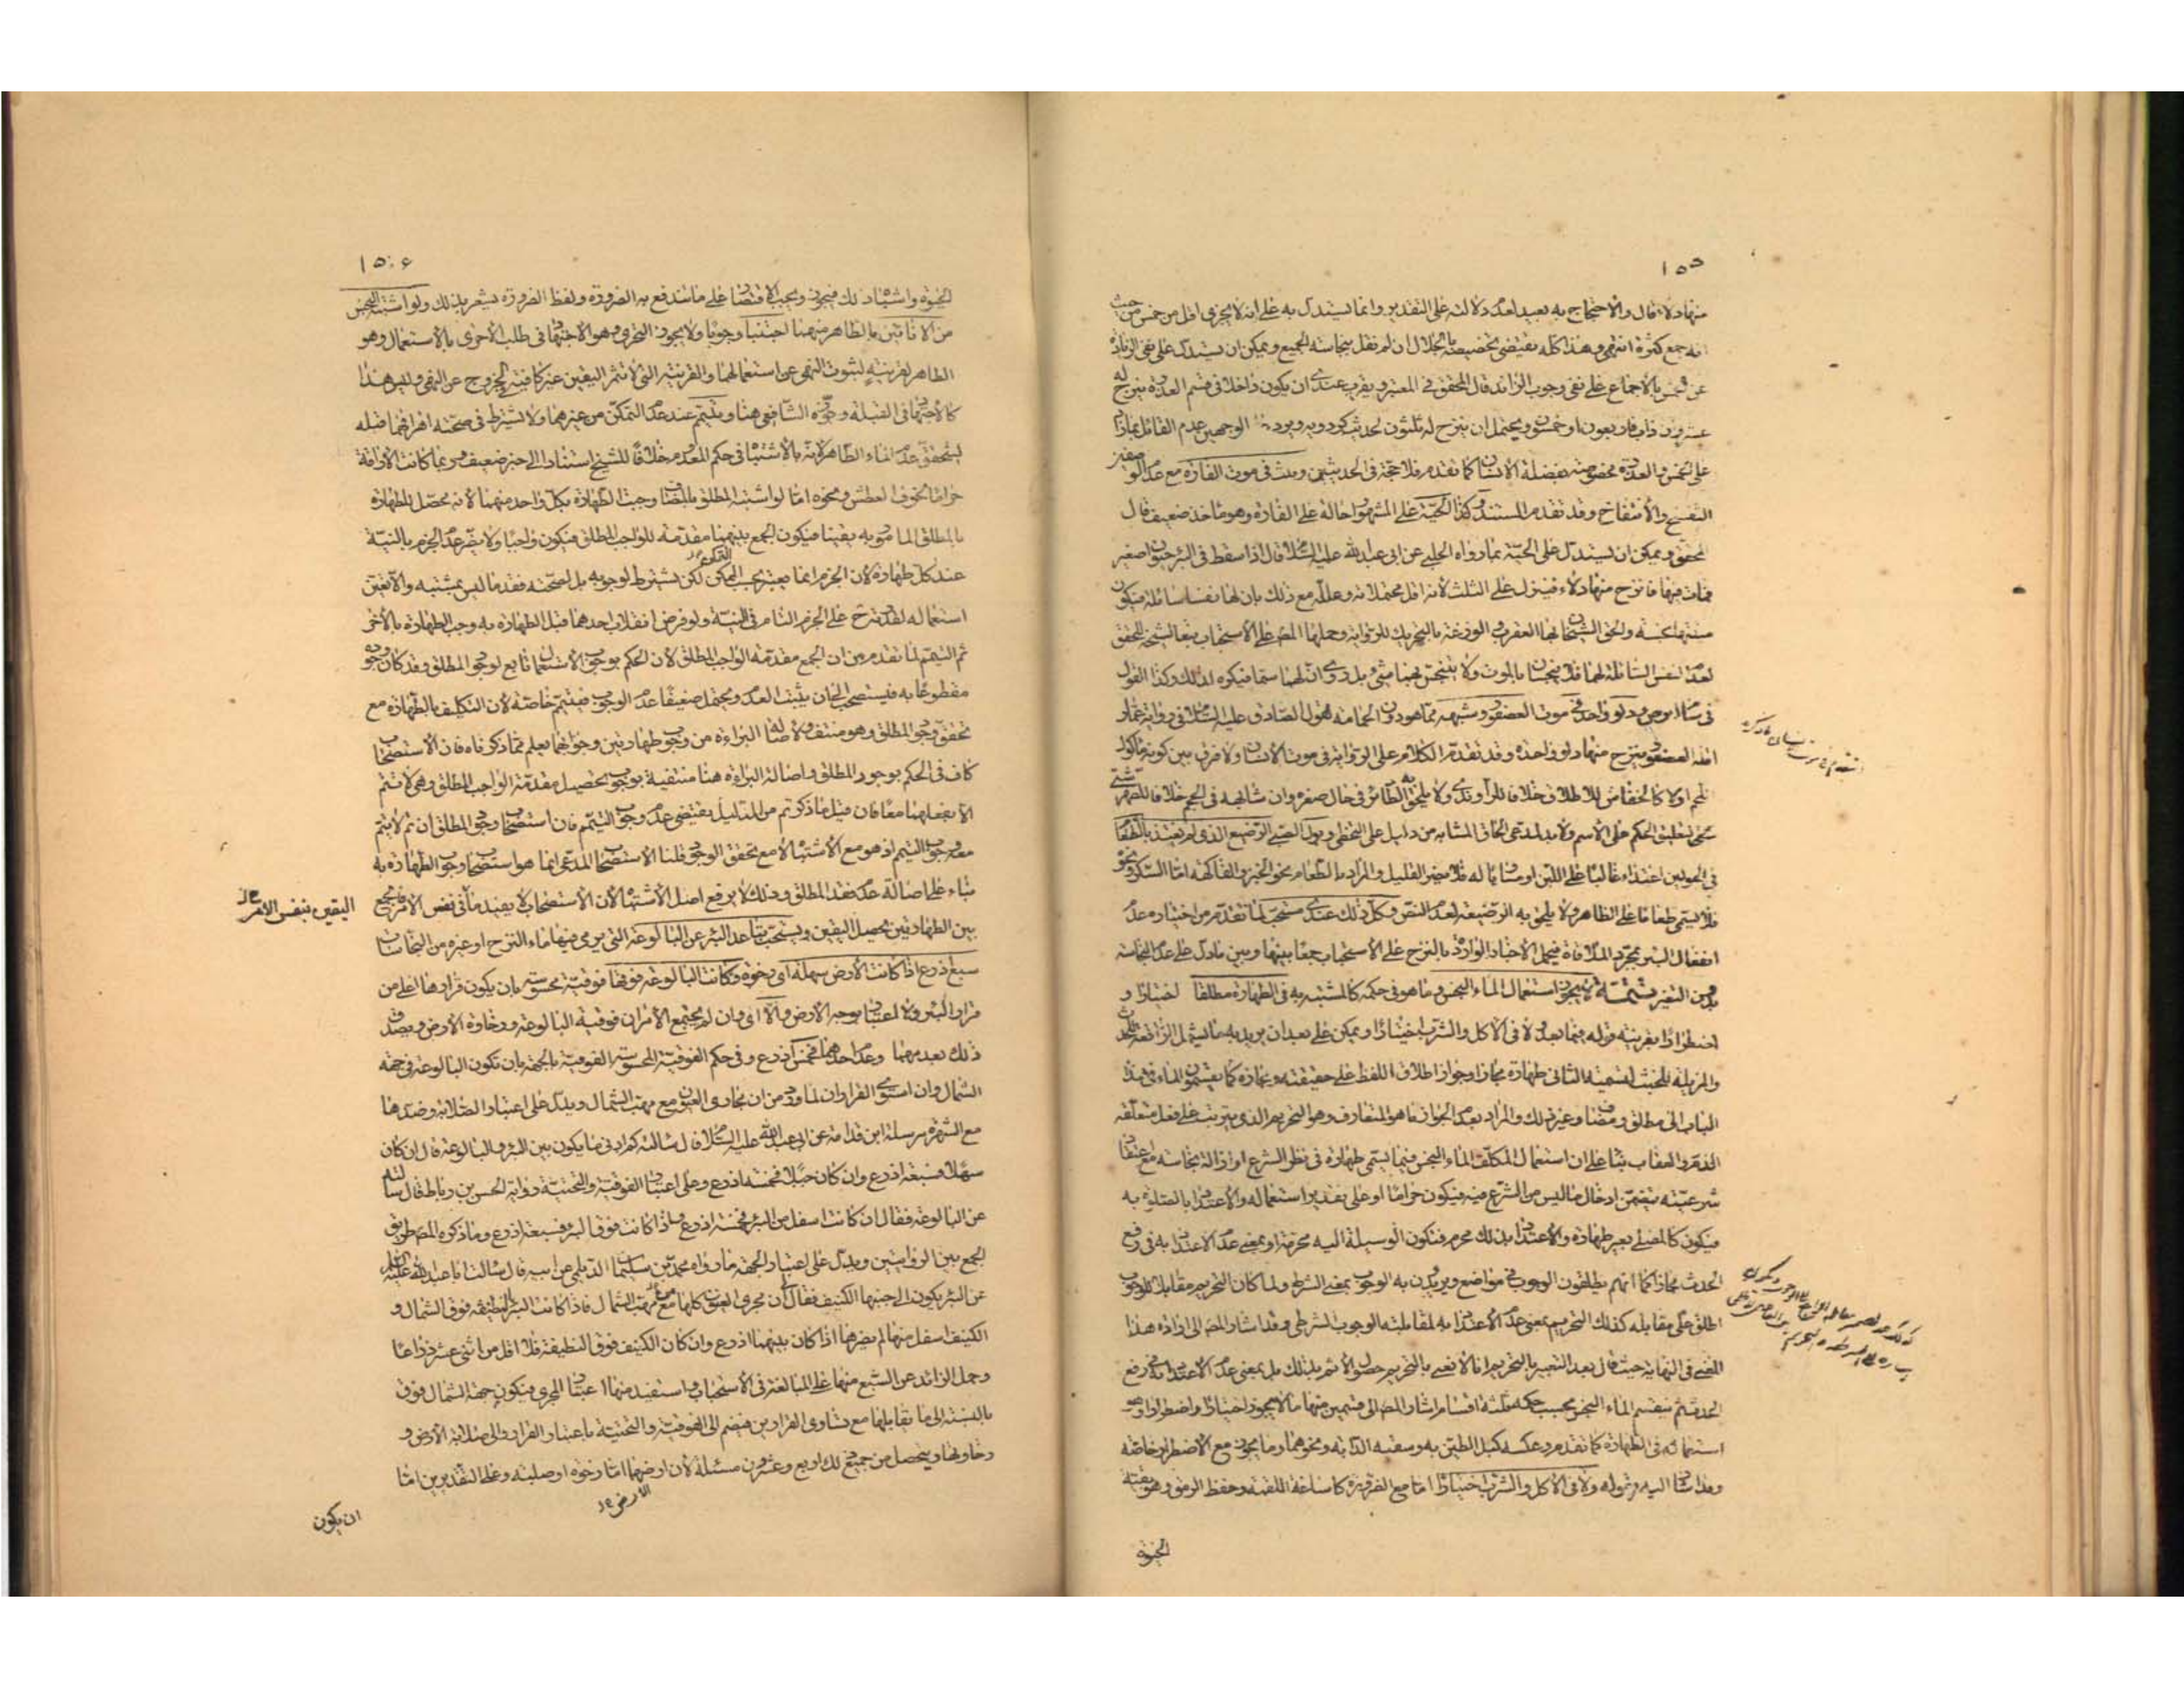 ١٥٥
منها دلاء قال والاحتجاج به بعيد لعدم دلالته على التقدير وانما يستدل به على انه لا يجزى اقل من خمس من حيث
انه جمع كثرة انتهى وهذا كله يقتضى تخصيصه بالجلال ان لم نقل بنجاسة الجميع ويمكن ان يستدل على نفى الزيادة
عن خمس بالاجماع على نفى وجوب الزائد قال المحقق فى المعتبر ويقرب عندى ان يكون داخلا فى قسم العذرة ينزح له
عشرون ذابت فاربعون او خمسون ويحتمل ان ينزح له ثلثون لحديث كردويه ويرد الوجهين عدم القائل بما زاد
على الخمس والعذرة مخصوصة بفضلة الانسان كما تقدم فلا حجة فى الحديثين وثلث فى موت الفارة مع عدم الوصفين
التفسخ والانتفاخ وقد تقدم المستند وكذا الحية على المشهور احالة على الفارة وهو ماخذ ضعيف قال
المحقق ويمكن ان يستدل على الحية بما رواه الحلبى عن ابى عبد الله عليه السلام قال اذا سقط فى البئر حيوان صغير
فمات فيها فانزح منها دلاء فينزل على الثلث لانه اقل محتملاته وعلله مع ذلك بان لها نفسا سائلة فيكون
ميتتها نجسة والحق الشيخان بها العقرب والوزغة بالتحريك للرواية وحملها المص على الاستحباب تبعا للشيخ المحقق
لعدم النفس السائلة لهما فلا ينجسان بالموت ولا ينجس بهما شئ بل روى ان لهما سما فيكره لذلك وكذا القول
فى سام ابرص ودلو واحد فى موت العصفور وشبهه مما هو دون الحمامة لقول الصادق عليه السلام فى رواية عمار
اقله العصفور ينزح منها دلو واحدة وقد تقدم الكلام على الرواية فى موت الانسان ولا فرق بين كونه ماكول
اللحم او لا كالخفاش للاطلاق خلافا للراوندى ولا يلحق به الطائر فى حال صغره وان شابهه فى الحجم خلافا للصهرشتى
بتعليق الحكم على الاسم ولا بد لمدعى الحاق المشابه من دليل على التخطى وبول الصبى الرضيع الذى لم يغتذ بالطعام
فى الحولين اغتذاء غالبا على اللبن او مساويا له فلا يضر القليل والمراد بالطعام نحو الخبز والفاكهة اما السكر ونحوه
فلا يسمى طعاما على الظاهر ولا يلحق به الرضيعة لعدم النص وكل ذلك عندى مستحب لما تقدم من اختياره عدم
انفعال البئر بمجرد الملاقاة فيحمل الاخبار الواردة بالنزح على الاستحباب جمعا بينها وبين ما دل على عدم النجاسة
بدون التغير تتمة لا يجوز استعمال الماء النجس وما هو فى حكمه كالمشتبه به فى الطهارة مطلقا اختيارا و
اضطرارا بقرينة قوله فيما بعد ولا فى الاكل والشرب اختيارا ويمكن على بعد ان يريد به ما يشمل الرافعة للحدث
والمزيلة للخبث لتسمية الثانى طهارة مجازا وجواز اطلاق اللفظ على حقيقته ومجازه كما يقسمون الماء فى هذا
الباب الى مطلق ومضاف وغير ذلك والمراد بعدم الجواز ما هو المتعارف وهو التحريم الذى يترتب على فعل متعلقه
الذم والعقاب بناء على ان استعمال المكلف الماء النجس فيما يسمى طهارة فى نظر الشرع او ازالة نجاسة مع اعتقاد
شرعيته يتضمن ادخال ما ليس من الشرع فيه فيكون حراما او على تقدير استعماله والاعتداد بالصلوة به
فيكون كالمصلى بغير طهارة والاعتداد بذلك محرم فتكون الوسيلة اليه محرمة او بمعنى عدم الاعتداد به فى رفع
الحدث مجازا كما انهم يطلقون الوجوب فى مواضع ويريدون به الوجوب بمعنى الشرط ولما كان التحريم مقابلا للوجوب
اطلق على مقابله كذلك التحريم بمعنى عدم الاعتداد به لمقابلته الوجوب الشرطى وقد اشار المص الى ارادة هذا
المعنى فى النهاية حيث قال بعد التعبير بالتحريم انا لا نعنى بالتحريم حصول الاثم بذلك بل بمعنى عدم الاعتداد به فى رفع
الحدث ثم ينقسم الماء النجس بحسب حكمه ثلثة اقسام اشار المص الى قسمين منها ما لا يجوز اختيارا واضطرارا وهو
استعماله فى الطهارة كما تقدم وعكسه كبل الطين به وسقيه الدابة ونحوهما وما يجوز مع الاضطرار خاصة
وقد اشار اليه بقوله ولا فى الاكل والشرب اختيارا اما مع الضرورة كاساغة اللقمة وحفظ الرمق وهو بقية
الحيوة
١٥٠٦
الحيوة واشباه ذلك فيجوز ويجب الاقتصار على ما تندفع به الضرورة ولفظ الضرورة يشعر بذلك ولو اشتبه النجس
من الانائين بالطاهر منهما اجتنبا وجوبا ولا يجوز التحرى وهو الاجتهاد فى طلب الاحرى بالاستعمال وهو
الطاهر لقرينة لثبوت النهى عن استعمالهما والقرينة التى لا تثمر اليقين غير كافية للخروج عن النهى وليس هذا
كالاجتهاد فى القبلة وجوزه الشافعى هنا ويتيمم عند عدم التمكن من غيرهما ولا يشترط فى صحته اهراقهما قبله
ليتحقق عدم الماء الطاهر لانه بالاشتباه فى حكم المعدوم خلافا للشيخ استنادا الى خبر ضعيف وربما كانت الاراقة
حراما لخوف العطش ونحوه اما لو اشتبه المطلق بالمضاف وجبت الطهارة بكل واحد منهما لانه محصل للطهارة
بالمطلق المامور به يقينا فيكون الجمع بينهما مقدمة للواجب المطلق فيكون واجبا ولا يضر عدم الجزم بالنية
عند كل طهارة لان الجزم انما يعتبر بحسب الممكن لكن يشترط لوجوبه بل لصحته فقد ما ليس بمشتبه والا تعين
استعماله لقدرته على الجزم التام فى النية ولو فرض انقلاب احدهما قبل الطهارة به وجب الطهارة بالاخر
ثم التيمم لما تقدم من ان الجمع مقدمة الواجب المطلق لان الحكم بوجوب الاستعمال تابع لوجود المطلق وقد كان وجوده
مقطوعا به فيستصحب الى ان يثبت العدم ويحتمل ضعيفا عدم الوجوب فيتيمم خاصة لان التكليف بالطهارة مع
تحقق وجود المطلق وهو منتف ولاصالة البراءة من وجوب طهارتين وجوابهما يعلم مما ذكرناه فان الاستصحاب
كاف فى الحكم بوجود المطلق واصالة البراءة هنا منتفية بوجوب تحصيل مقدمة الواجب المطلق وهى لا تتم
الا بفعلهما معا فان قيل ما ذكرتم من الدليل يقتضى عدم وجوب التيمم فان استصحاب وجود المطلق ان تم لا يتم
معه وجوب التيمم اذ هو مع الاشتباه لا مع تحقق الوجود قلنا الاستصحاب المدعى انما هو استصحاب وجوب الطهارة به
بناء على اصالة عدم فقد المطلق وذلك لا يرفع اصل الاشتباه لان الاستصحاب لا يفيد ما فى نفس الامر فالجمع
بين الطهارتين يحصل اليقين ويستحب تباعد البئر عن البالوعة التى يرمى فيها ماء النزح او غيره من النجاسات
سبع اذرع اذا كانت الارض سهلة اى رخوة وكانت البالوعة فوقها فوقية محسوسة بان يكون قرارها اعلى من
قرار البئر ولا اعتبار بوجه الارض والا اى وان لم يجتمع الامران فوقية البالوعة ورخاوة الارض ويصدق
ذلك بعدمهما وعدم احدهما فخمس اذرع وفى حكم الفوقية المحسوسة الفوقية بالجهة بان تكون البالوعة فى جهة
الشمال وان استوى القراران لما ورد من ان مجارى العيون مع مهب الشمال ويدل على اعتبار الصلابة وضدها
مع الشهرة مرسلة ابن قدامة عن ابى عبد الله عليه السلام قال سالته كم ادنى ما يكون بين البئر والبالوعة قال ان كان
سهلا فسبعة اذرع وان كان جبلا فخمسة اذرع وعلى اعتبار الفوقية والتحتية رواية الحسن بن رباط قال سالته
عن البالوعة فقال ان كانت اسفل من البئر فخمسة اذرع واذا كانت فوق البئر فسبعة اذرع وما ذكره المص طريق
الجمع بين الروايتين ويدل على اعتبار الجهة ما رواه محمد بن سليمان الديلمى عن ابيه قال سالت ابا عبد الله عليه السلام
عن البئر يكون الى جنبها الكنيف فقال ان مجرى العيون كلها مع مهب الشمال فاذا كانت البئر النظيفة فوق الشمال و
الكنيف اسفل منها لم يضرها اذا كان بينهما اذرع وان كان الكنيف فوق النظيفة فلا اقل من اثنى عشر ذراعا
وحمل الزائد عن السبع منها على المبالغة فى الاستحباب واستفيد منها اعتبار المجرى فيكون جهة الشمال فوق
بالنسبة الى ما يقابلها مع تساوى القرارين فيضم الى الفوقية والتحتية باعتبار القرار والى صلابة الارض و
رخاوتها ويتحصل من جميع ذلك اربع وعشرون مسئلة لان ارضهما اما رخوة او صلبة وعلى التقديرين اما
الارض
ان يكون
اليقين بنفس الامر